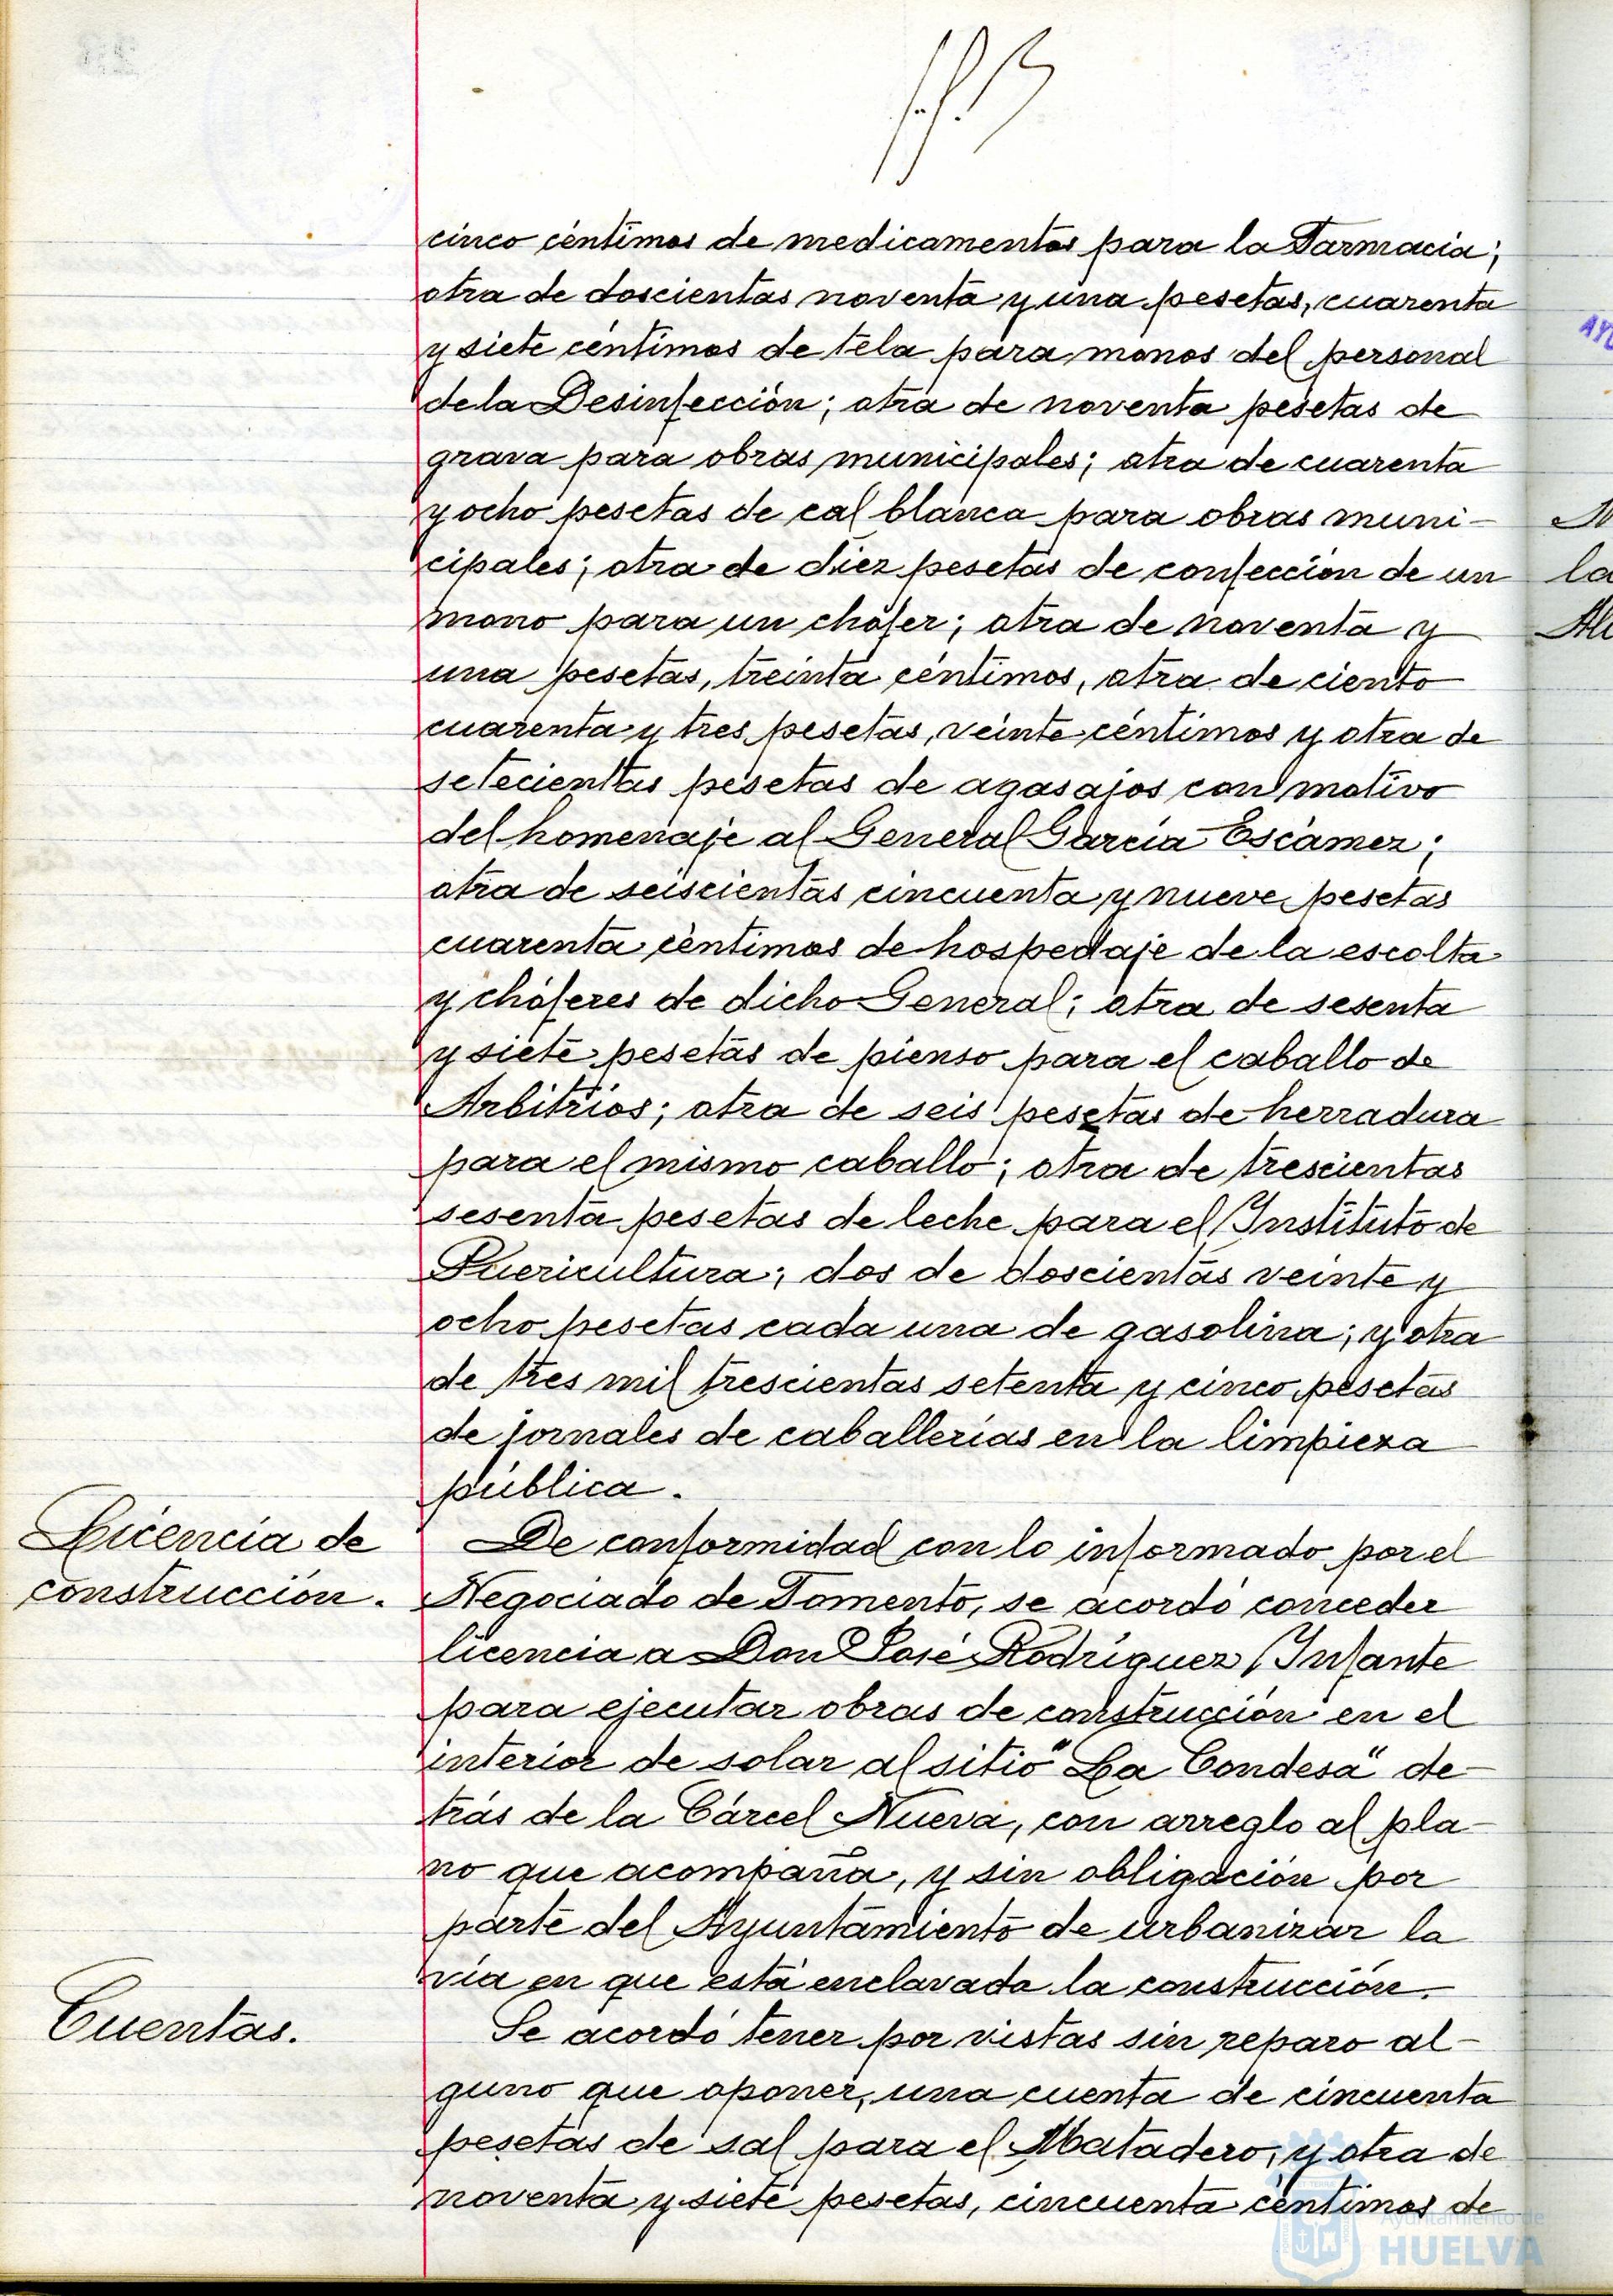 cinco céntimos de medicamentos para la Farmacia;
otra de doscientas noventa y una pesetas, cuarenta
y siete céntimos de tela para monos del personal
de la Desinfección; otra de noventa pesetas de
grava para obras municipales; otra de cuarenta
y ocho pesetas de cal blanca para obras muni-
cipales; otra de diez pesetas de confección de un
mono para un chófer; otra de noventa y
una pesetas, treinta céntimos, otra de ciento
cuarenta y tres pesetas, veinte céntimos y otra de
setecientas pesetas de agasajos con motivo
del homenaje al General García Escámez;
otra de seiscientas cincuenta y nueve pesetas
cuarenta céntimos de hospedaje de la escolta
y chóferes de dicho General; otra de sesenta
y siete pesetas de pienso para el caballo de
Arbitrios; otra de seis pesetas de herradura
para el mismo caballo; otra de trescientas
sesenta pesetas de leche para el Instituto de
Puericultura; dos de doscientas veinte y
ocho pesetas cada una de gasolina; y otra
de tres mil trescientas setenta y cinco pesetas
de jornales de caballerías en la limpieza
pública.
Licencia de
construcción.
De conformidad con lo informado por el
Negociado de Fomento, se acordó conceder
licencia a Don José Rodríguez Infante
para ejecutar obras de construcción en el
interior de solar al sitio "La Condesa" de-
trás de la Cárcel Nueva, con arreglo al pla-
no que acompaña, y sin obligación por
parte del Ayuntamiento de urbanizar la
vía en que está enclavada la construcción.
Cuentas.
Se acordó tener por vistas sin reparo al-
guno que oponer, una cuenta de cincuenta
pesetas de sal para el Matadero, y otra de
noventa y siete pesetas, cincuenta céntimos de
la
Ayuntamiento de
HUELVA